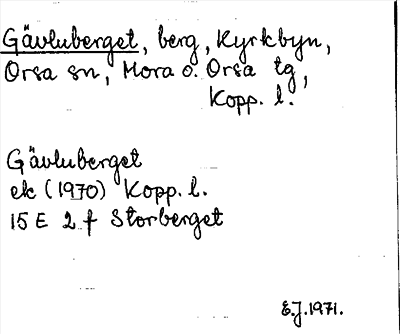 Gävluberget, berg, Kyrkbyn,
Orsa sn, Mora o. Orsa tg,
Kopp. l.
Gävluberget
ek (1970) Kopp. l.
15 E 2 f Storberget
E.J. 1971.